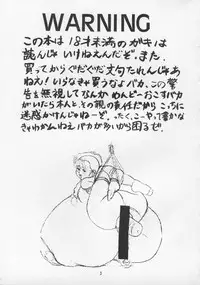 WARNING
この本は18才未満のガキは
読んじゃいけねえんだぞ。また、
買ってからぐだぐだ文句たれんじゃあ
ねえ!いらなきゃ買うなよバカ。この警
告を無視してなんかめんどーおこすバカ
がいたら本人と、その親の責任だからこっちに
迷惑かけんじゃねーぞ。ったく、こーやって書かな
きゃわかんねえバカが多いから困るぜ。